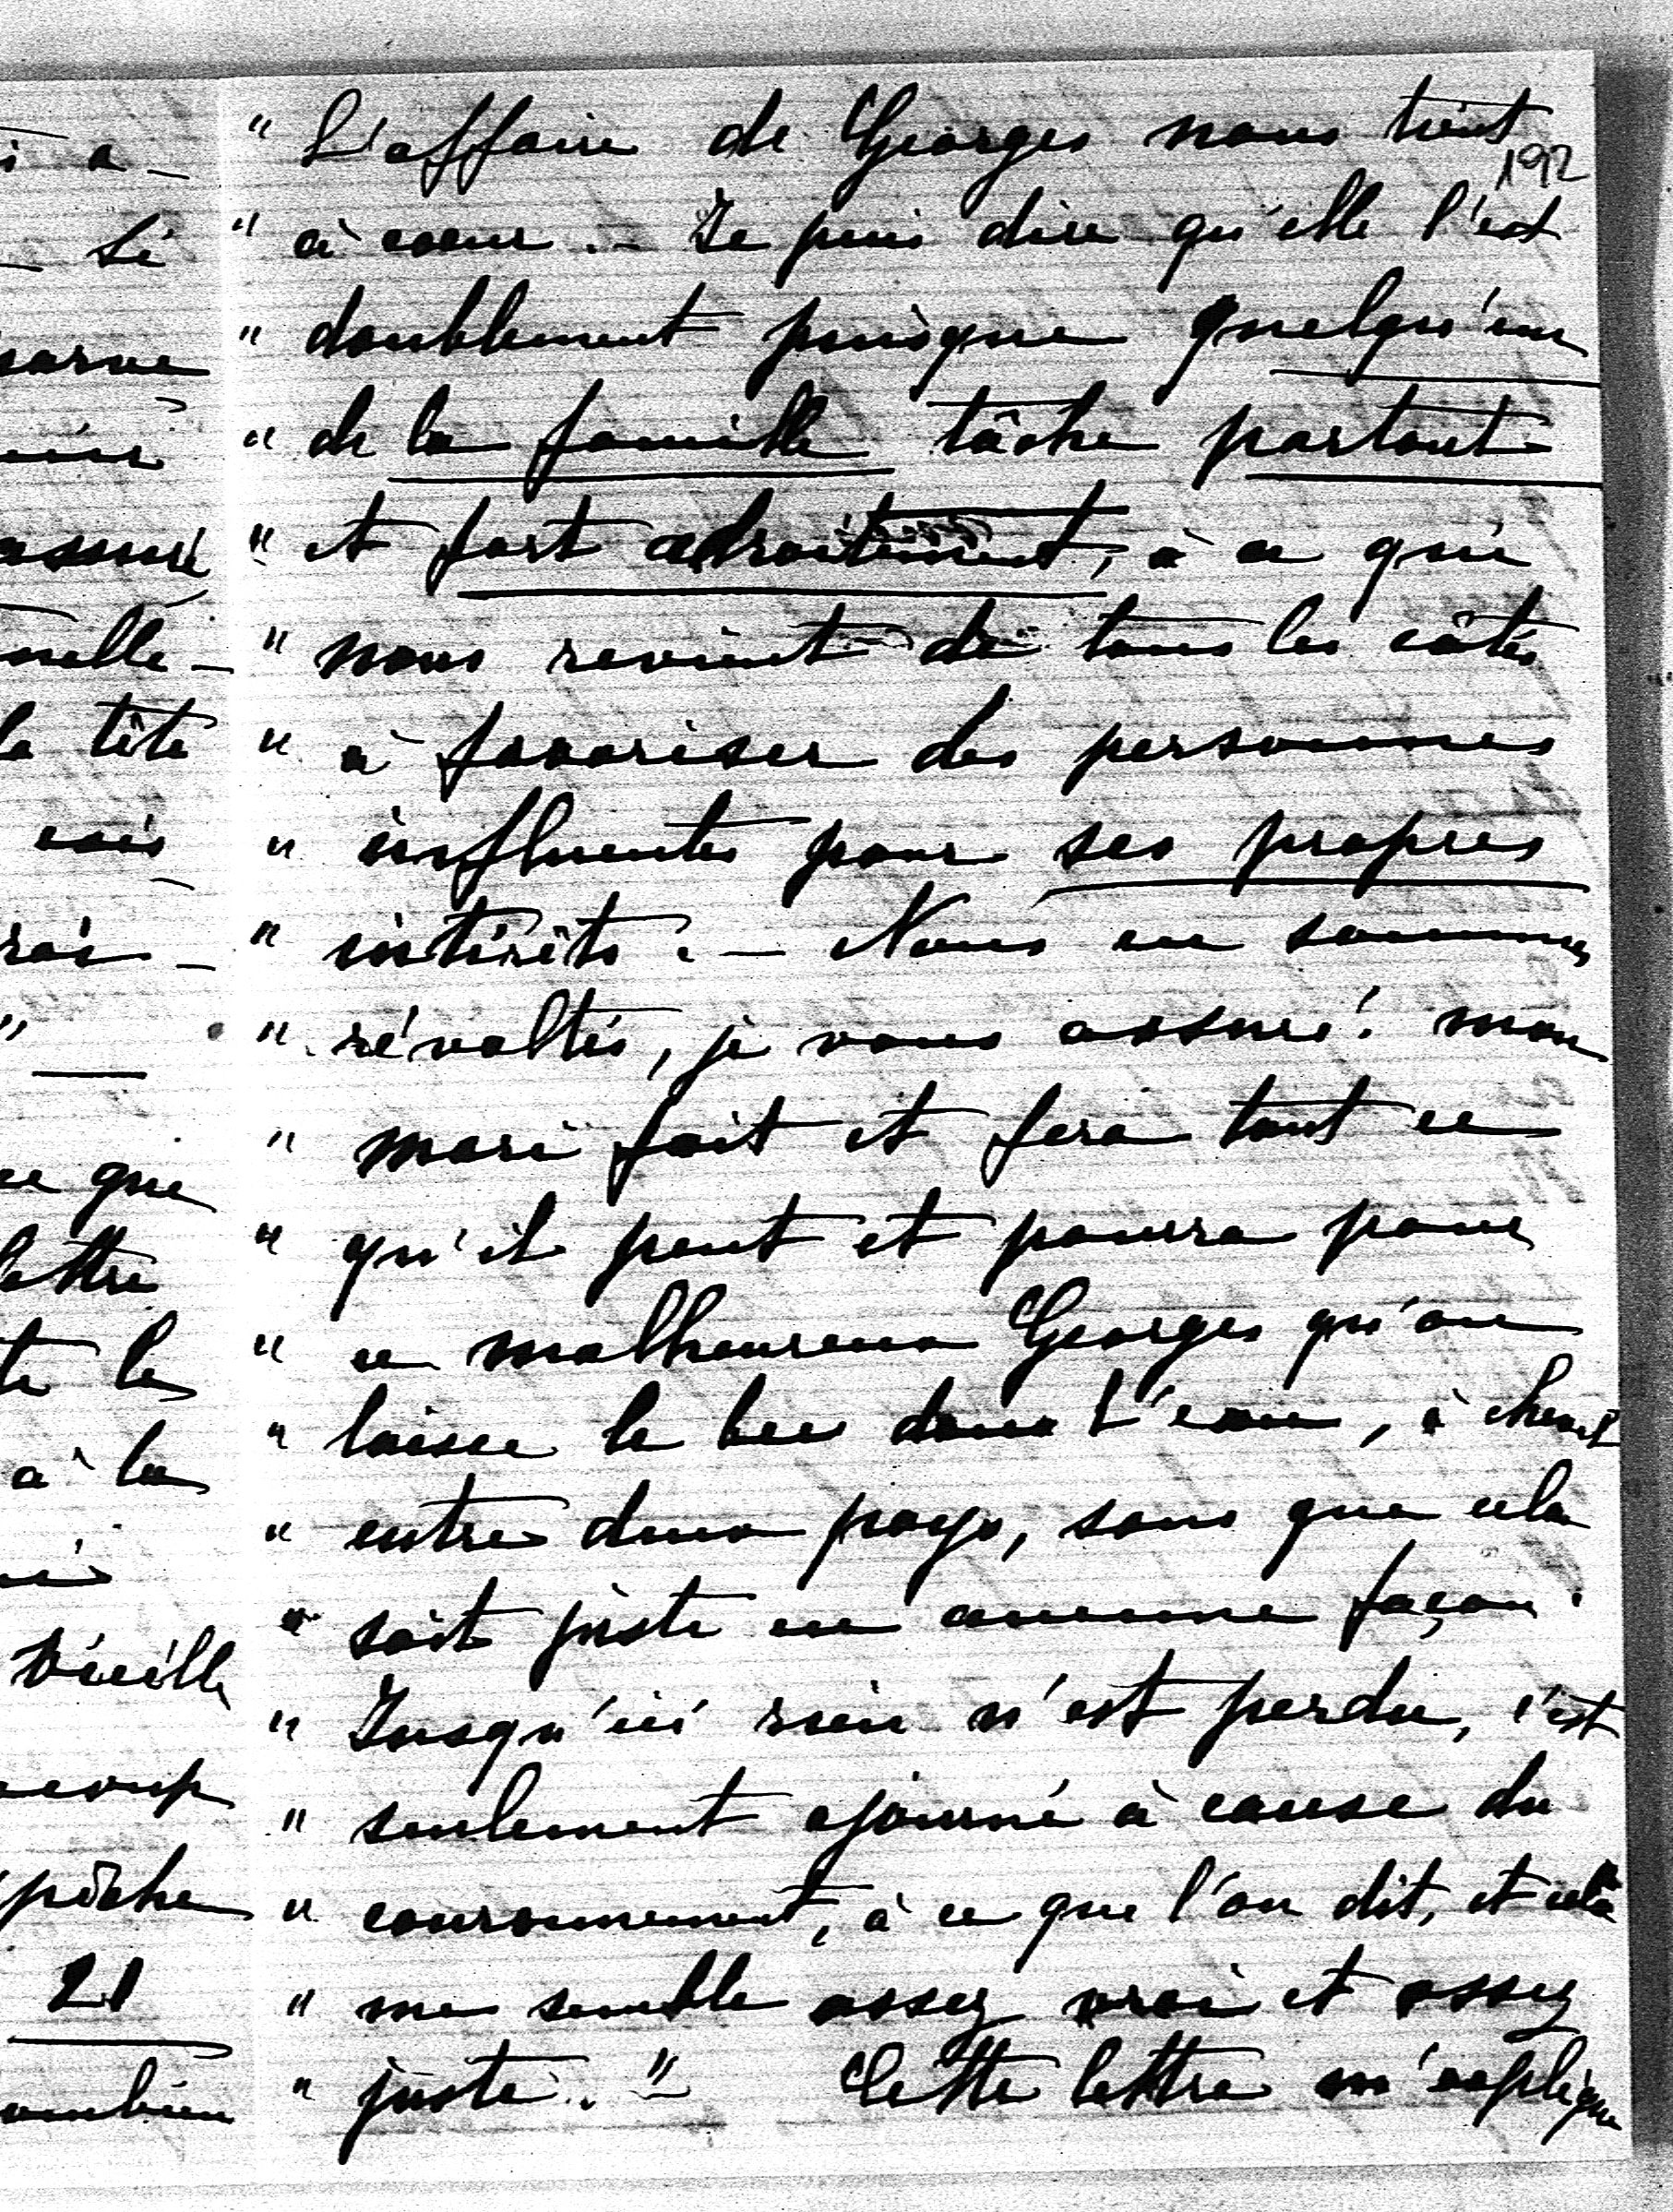 192
" L'affaire de Georges nous tient
" à coeur. – Je puis dire qu'elle l'est
" doublement puisque quelqu'un
" de la famille tâche partout
" et fort adroitement, à ce qui
" nous revient de tous les côtés
" à favoriser des personnes
" influentes pour ses propres
" intérêts. – Nous en sommes
" révoltés, je vous assure! mon
" mari fait et fera tout ce
" qu'il peut et pourra pour
" ce malheureux Georges qu'on
" laisse le bec dans l'eau, à cheval
" entre deux pays, sans que cela
" soit juste en aucune façon.
" Jusqu'ici rien n'est perdu, c'est
" seulement ajourné à cause du
" couronnement, à ce que l'on dit, et cela
" me semble assez vrai et assez
" juste. " Cette lettre m'explique
a –
si
assuré
nelle –
la tête
vois
"
ce que
lettre
te les
à la
vieille
pêche
21
combien